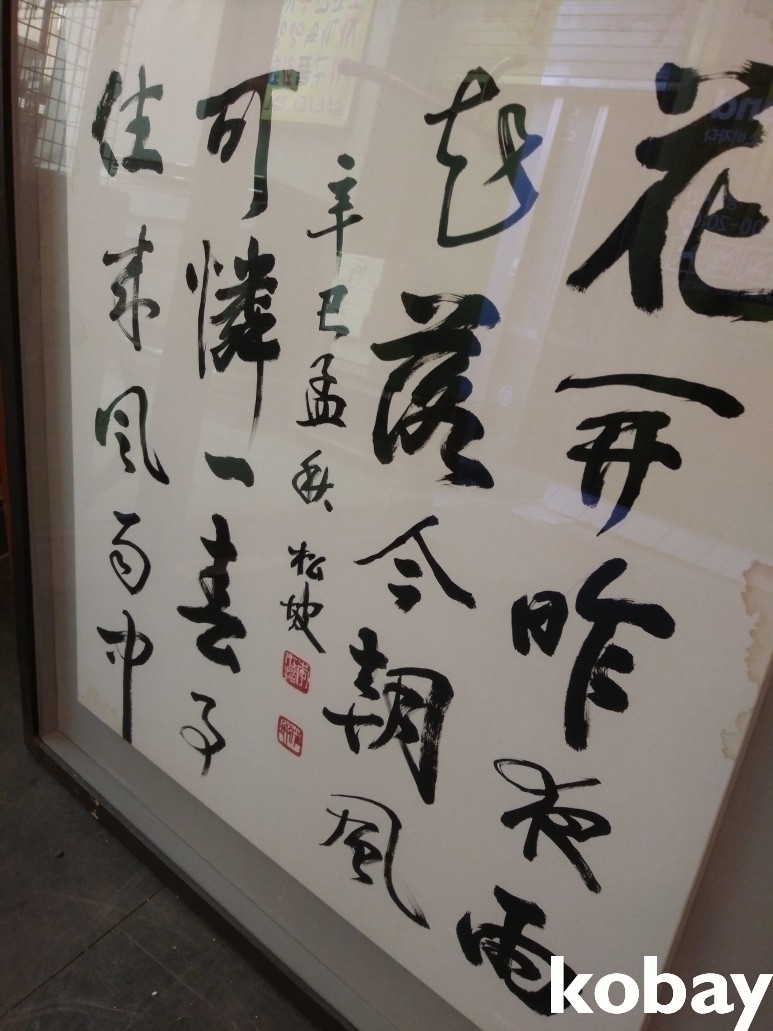 花開昨夜雨
花落今朝風
可憐一春事
往來風雨中
辛巳孟秋 松
kobay